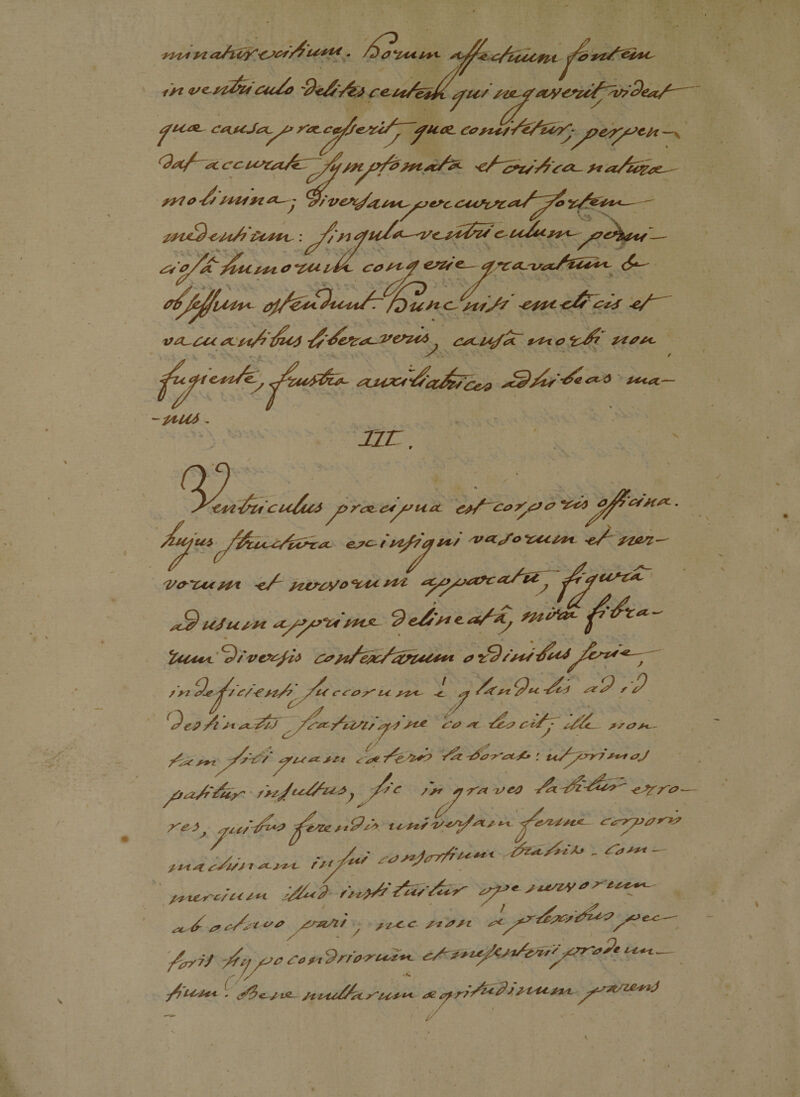 minatur exitium. Horum affectuum fontem
in ventriculo delites centem qui negaverit, videat
quæ causa præcesserit, quæ comitetur; perpen-
dat accurate symptomata et critica naturæ
molimina; diversam percurrat sortem
medentium: singula ventriculum perni-
ciosâ humorum congerie gravatum &
obsessum ostendunt. Hunc nisi emeticis et
vacuantibus liberaveris, causâ morbi non
fugiente, frustra auxiliatrices adhibeas ma-
-nus.
III.
Ventriculus præcipua est corporis officina.
hujus structura ex insigni vasorum et ner-
vorum et nervorum apparatu, figurâ
ad usum apprime delineatâ, mirâ fibra-
rum diversis contextarum ordinibus serie,
inde ficienti succorum è glandulis ad id
destinatis scaturigine coalescit; ille non
tam sibi quam cæteris laborat: ut primos
patitur insultus, sic in graves labitur erro-
res, quibus ferendis universam ferme corporis
machinam in sui consortium trahit. Com-
mercium illud instituitur ope nervorum
ab octavo pari, nec non à plexibus pec-
toris hypocondriorum et mesenterii prodeun-
tium. Bene multarum ægritudinum parens